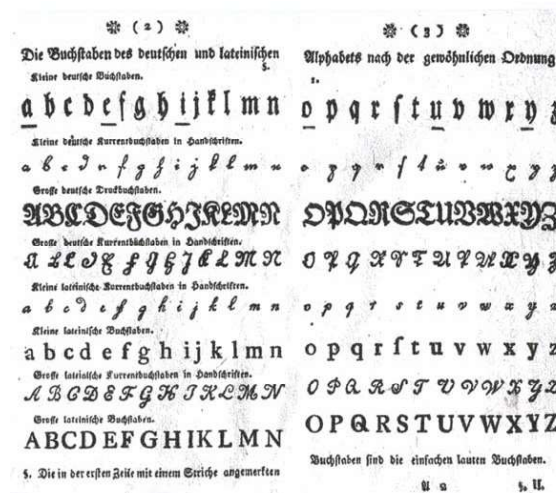 ( 2 )
Die Buchstaben des deutschen und lateinischen
§.
Kleine deutsche Buchstaben.
a b c d e f g h i j k l m n
Kleine deutsche Kurrentbuchstaben in Handschriften.
a b c d e f g h i j k l m n
Grosse deutsche Druckbuchstaben.
A B C D E F G H J K L M N
Grosse deutsche Kurrentbuchstaben in Handschriften.
A B C D E F G H J K L M N
Kleine lateinische Kurrentbuchstaben in Handschriften.
a b c d e f g h i j k l m n
Kleine lateinische Buchstaben.
a b c d e f g h i j k l m n
Grosse lateinische Kurrentbuchstaben in Handschriften.
A B C D E F G H I K L M N
Grosse lateinische Buchstaben.
A B C D E F G H I K L M N
§. Die in der ersten Zeile mit einem Striche angemerkten
( 3 )
Alphabets nach der gewöhnlichen Ordnung
1.
o p q r ſ t u v w x y z
o p q r ſ t u v w x y z
O P Q R S T U V W X Y Z
O P Q R S T U V W X Y Z
o p q r s t u v w x y z
o p q r ſ t u v w x y z
O P Q R S T U V W X Y Z
O P Q R S T U V W X Y Z
Buchstaben sind die einfachen lauten Buchstaben.
§. II.